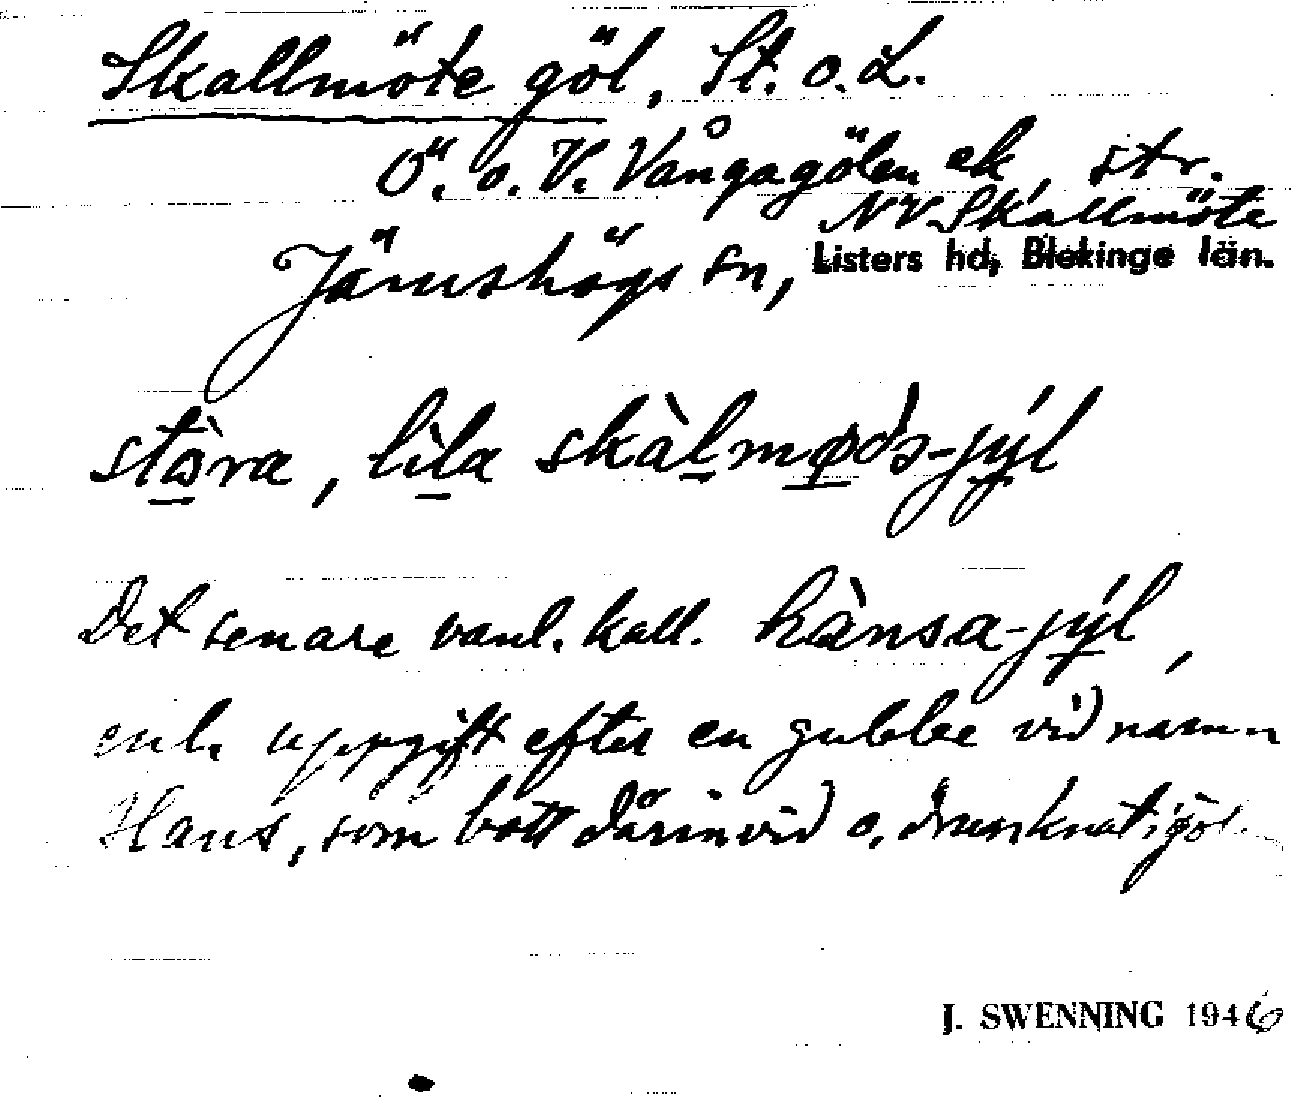 Skallmöte göl, St. o. L.
Ö. o. V. Vångagölen ek, str.
NV Skallmöte
Jämshögs sn, Listers hd, Blekinge län.
stòra, lìla skàlmøds-jýl
Det senare vanl. kall. hànsa-jýl,
enl. uppgift efter en gubbe vid namn
Hans, som bott därinvid o. drunknat i göl
J. SWENNING 1946